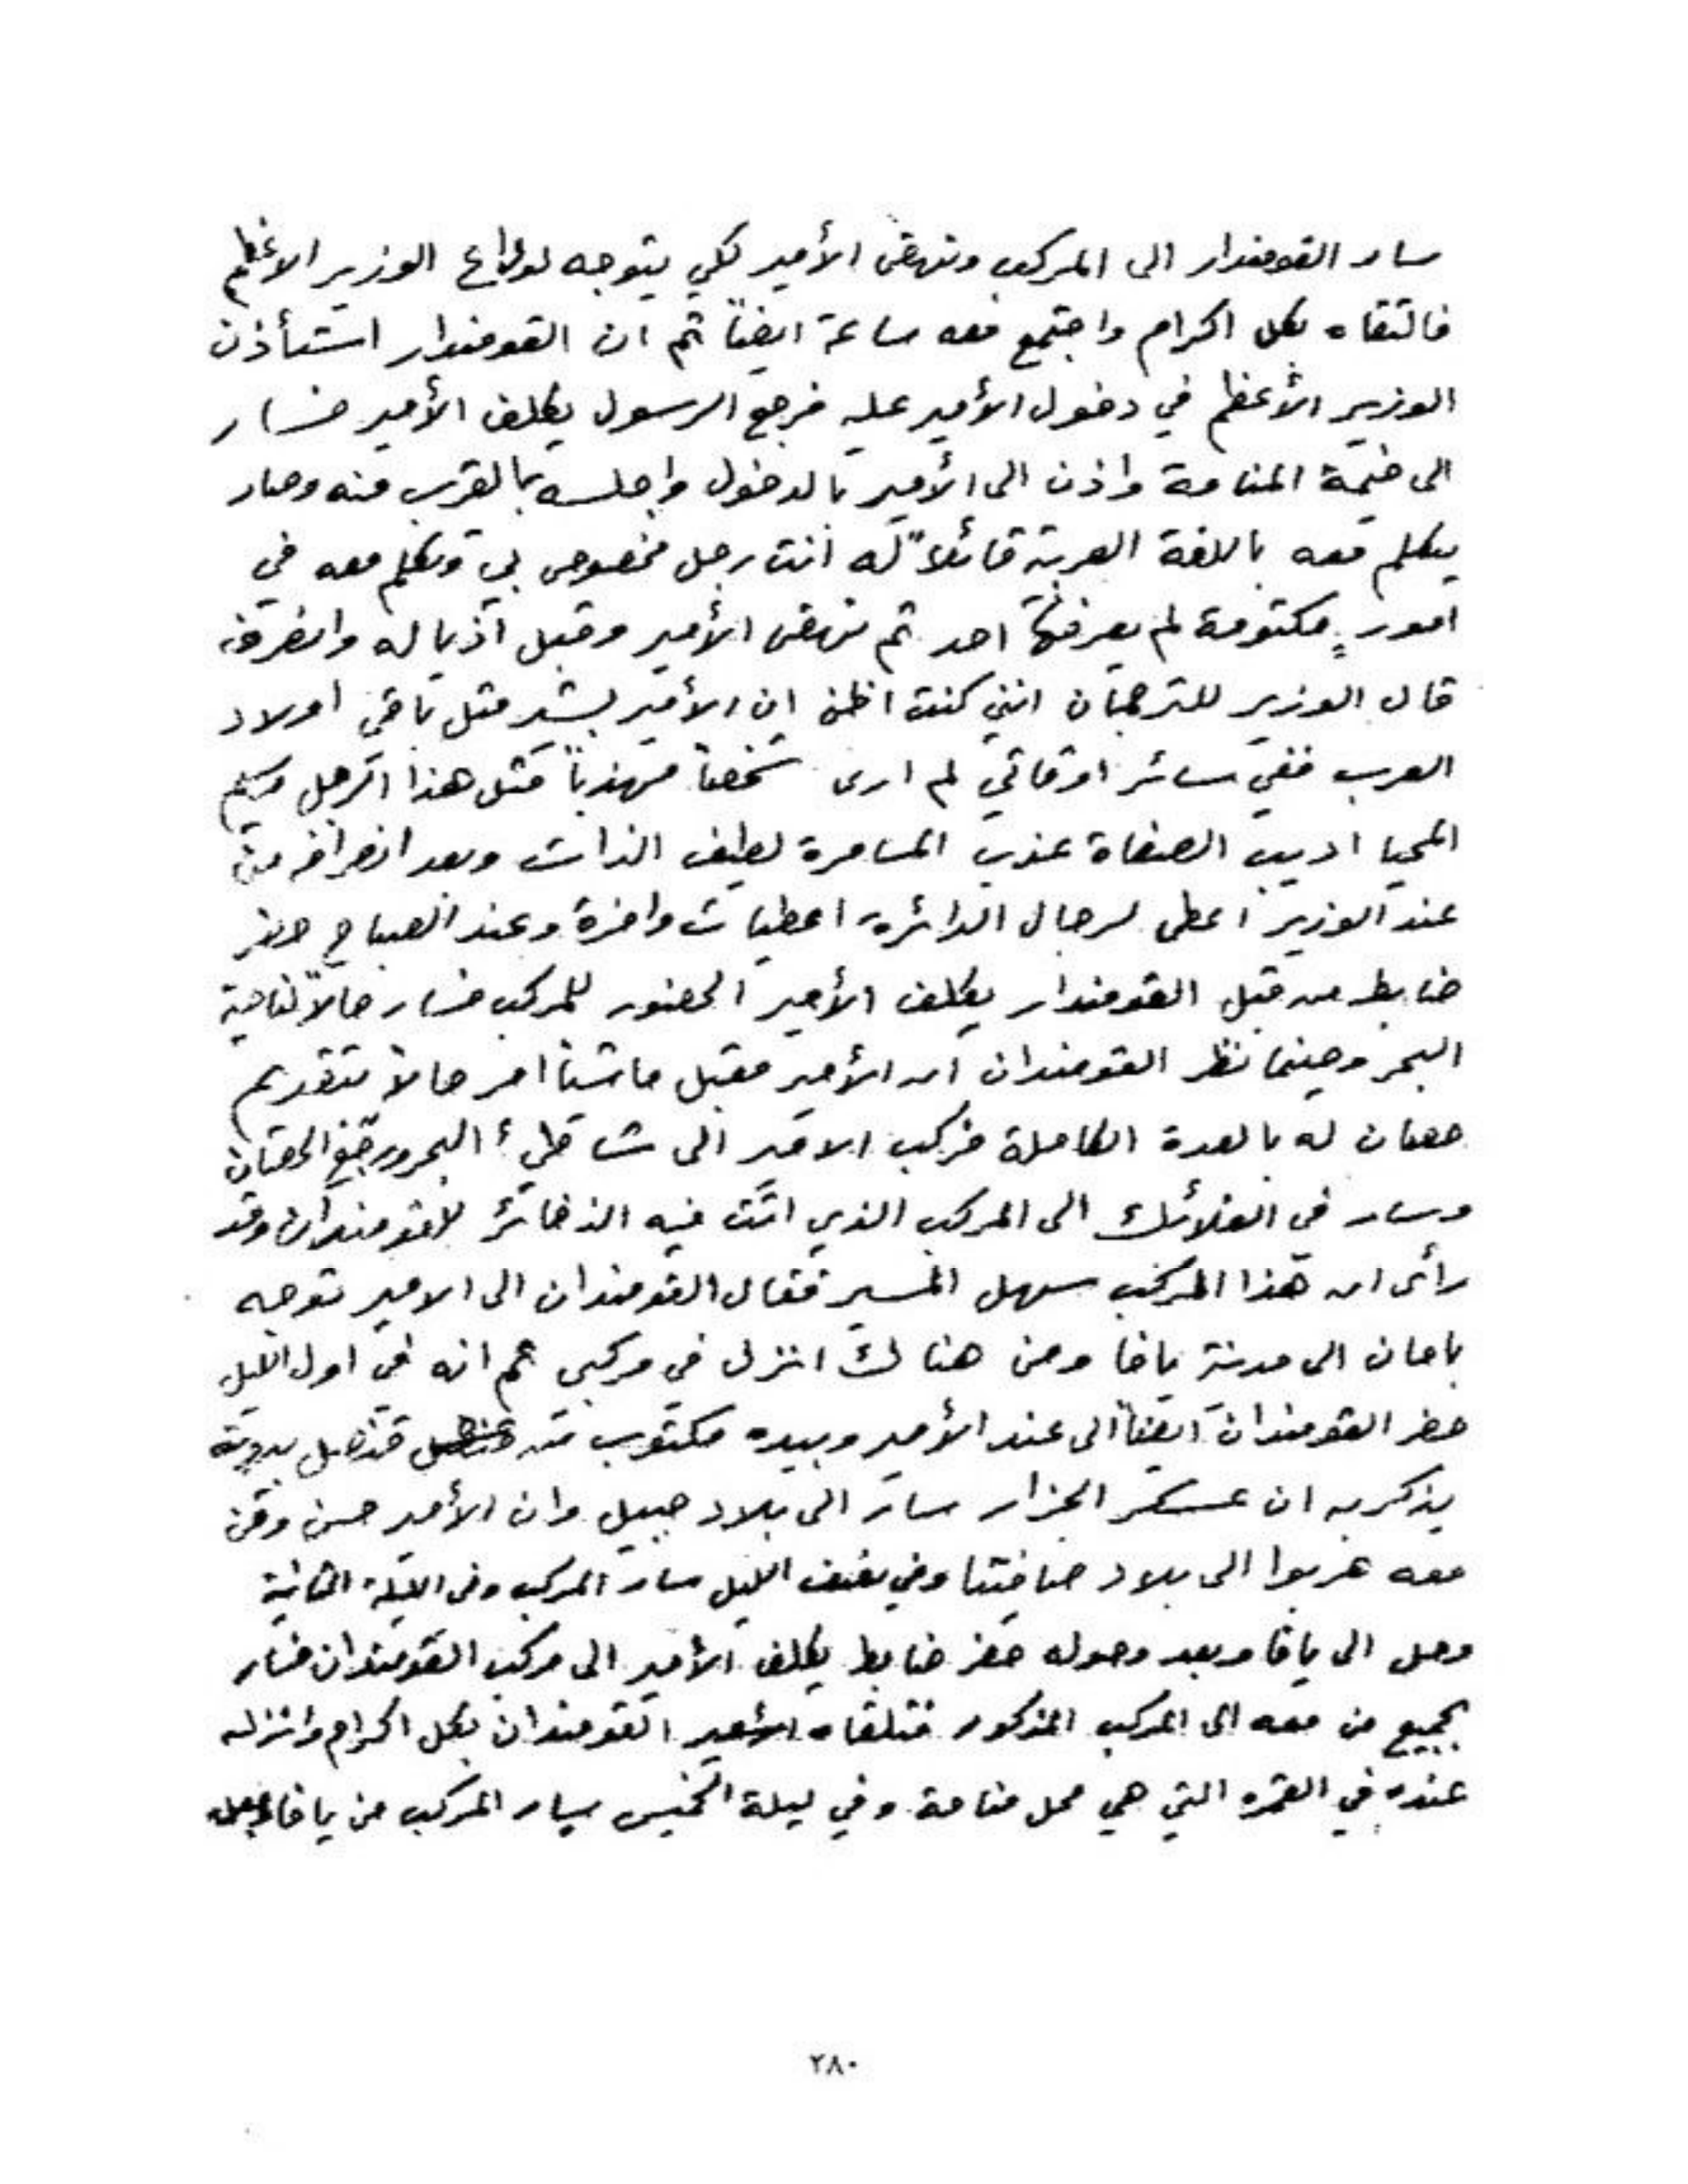 سار القومندار الى المركب ونهض الأمير لكي يتوجه لوداع الوزير الاعظم
فالتقاه بكل اكرام واجتمع معه ساعة ايضاً ثم ان القومندار استأذن
الوزير الأعظم في دخول الأمير عليه فرجع الرسول يكلف الأمير فسار
الى خيمة المنامة واذن الى الأمير بالدخول واجلسه بالقرب منه وصار
يتكلم معه باللغة العربية قائلاً له انت رجل مخصوص لي وتكلم معه في
امورٍ مكتومة لم يعرفها احد ثم نهض الأمير وقبل اذياله وانصرف
قال الوزير للترجمان انني كنت اظن ان الأمير بشير مثل باقي اولاد
العرب ففي سائر اوقاتي لم ارى شخصاً مهذباً مثل هذا الرجل وسيم
المحيا اديب الصفاة عذب المسامرة لطيف الذات وبعد انصرافه من
عند الوزير اعطى لرجال الدائرة اعطيات وافرة وعند الصباح حضر
ضابط من قبل القومندار يكلف الأمير الحضور للمركب فسار حالاً لناحية
البحر وحينما نظر القومندان ان الأمير مقبل ماشياً امر حالاً بتقديم
حصان له بالعدة الكاملة فركب الامير الى شاطئ البحر ورجع الحصان
وسار في الفلائك الى المركب الذي اتت فيه الذخائر للقومندان وقد
رأى ان هذا المركب سهل المسير فقال القومندان الى الامير توجه
بامان الى مدينة يافا ومن هنالك انزل في مركبي ثم انه في اول الليل
حضر القومندان ايضاً الى عند الأمير وبيده مكتوب من قنصل بيروت
يذكر به ان عسكر الجزار سار الى بلاد جبيل وان الأمير حسن ومن
معه هربوا الى بلاد صافيتا وفي نصف الليل سار المركب وفي الليلة الثانية
وصل الى يافا وبعد وصوله حضر ضابط يكلف الأمير الى مركب القومندان فسار
بجميع من معه الى المركب المذكور فتلقاه القومندان بكل اكرام وانزله
عنده في القمره التي هي محل منامة وفي ليلة الخميس سار المركب من يافا
٢٨٠